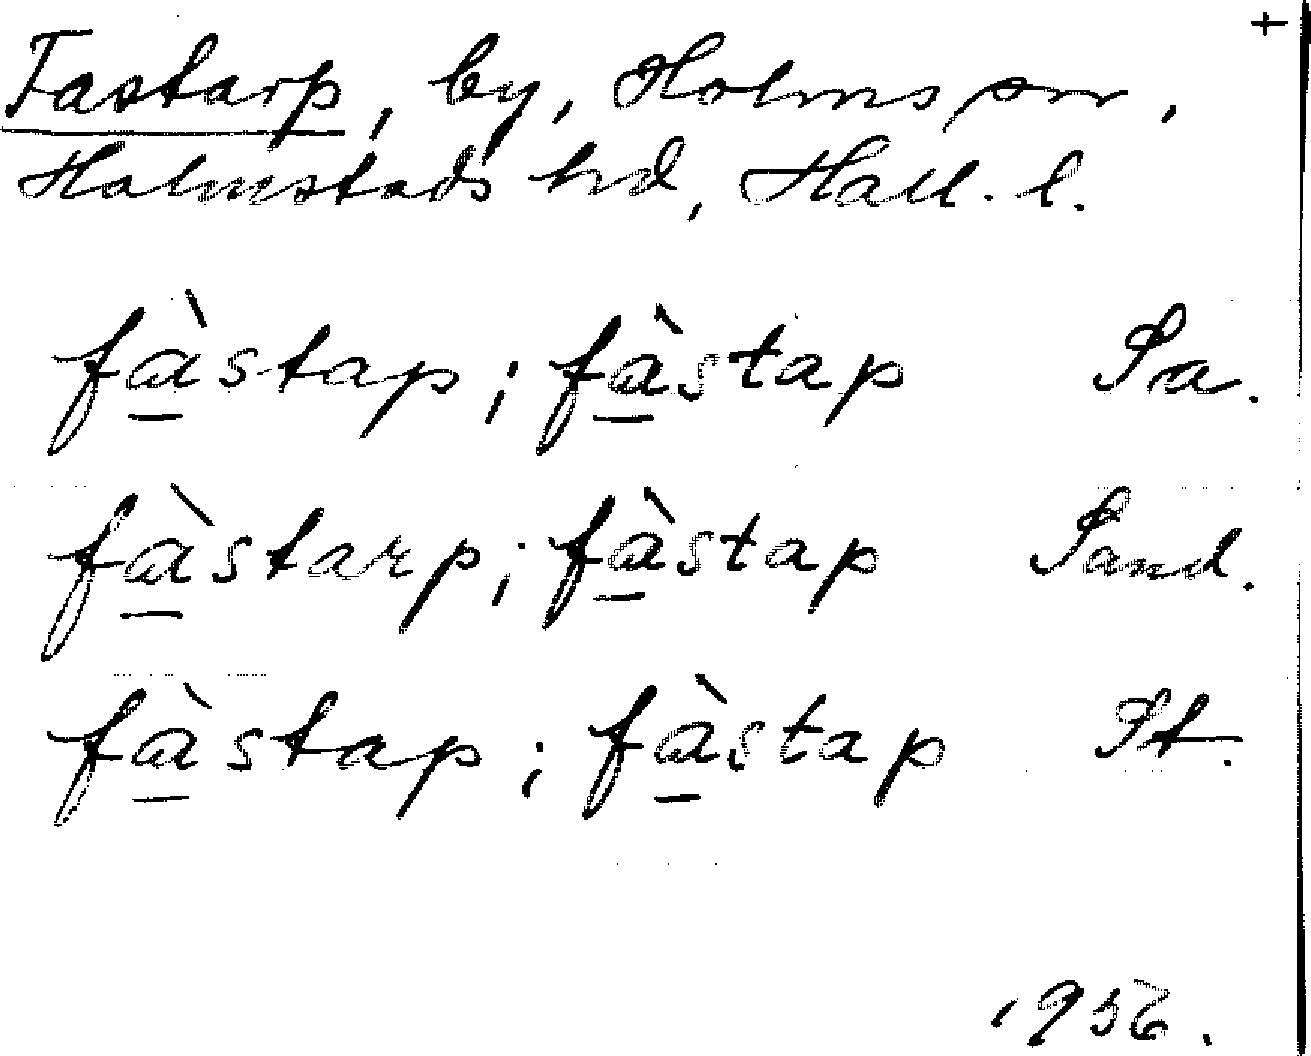 +
Fastarp, by, Holms sn,
Halmstads hd, Hall. l.
fà̱stap; fà̱stap Sa.
fà̱starp; fà̱stap Sand.
fà̱stap; fà̱stap St.
1936.